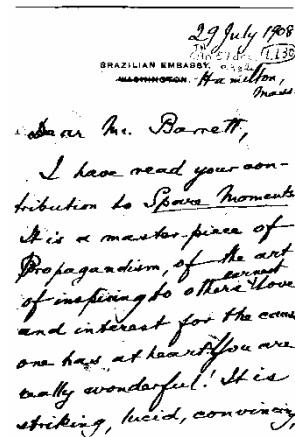 29 July 1908
BRAZILIAN EMBASSY,
WASHINGTON.
Hamilton,
Mass.
Dear Mr. Barrett,
I have read your con-
tribution to Spare Moments
It is a master-piece of
Propagandism, of the art
of inspiring to others earnest love
and interest for the cause
one has at heart. You are
really wonderful! It is
striking, lucid, convincing,